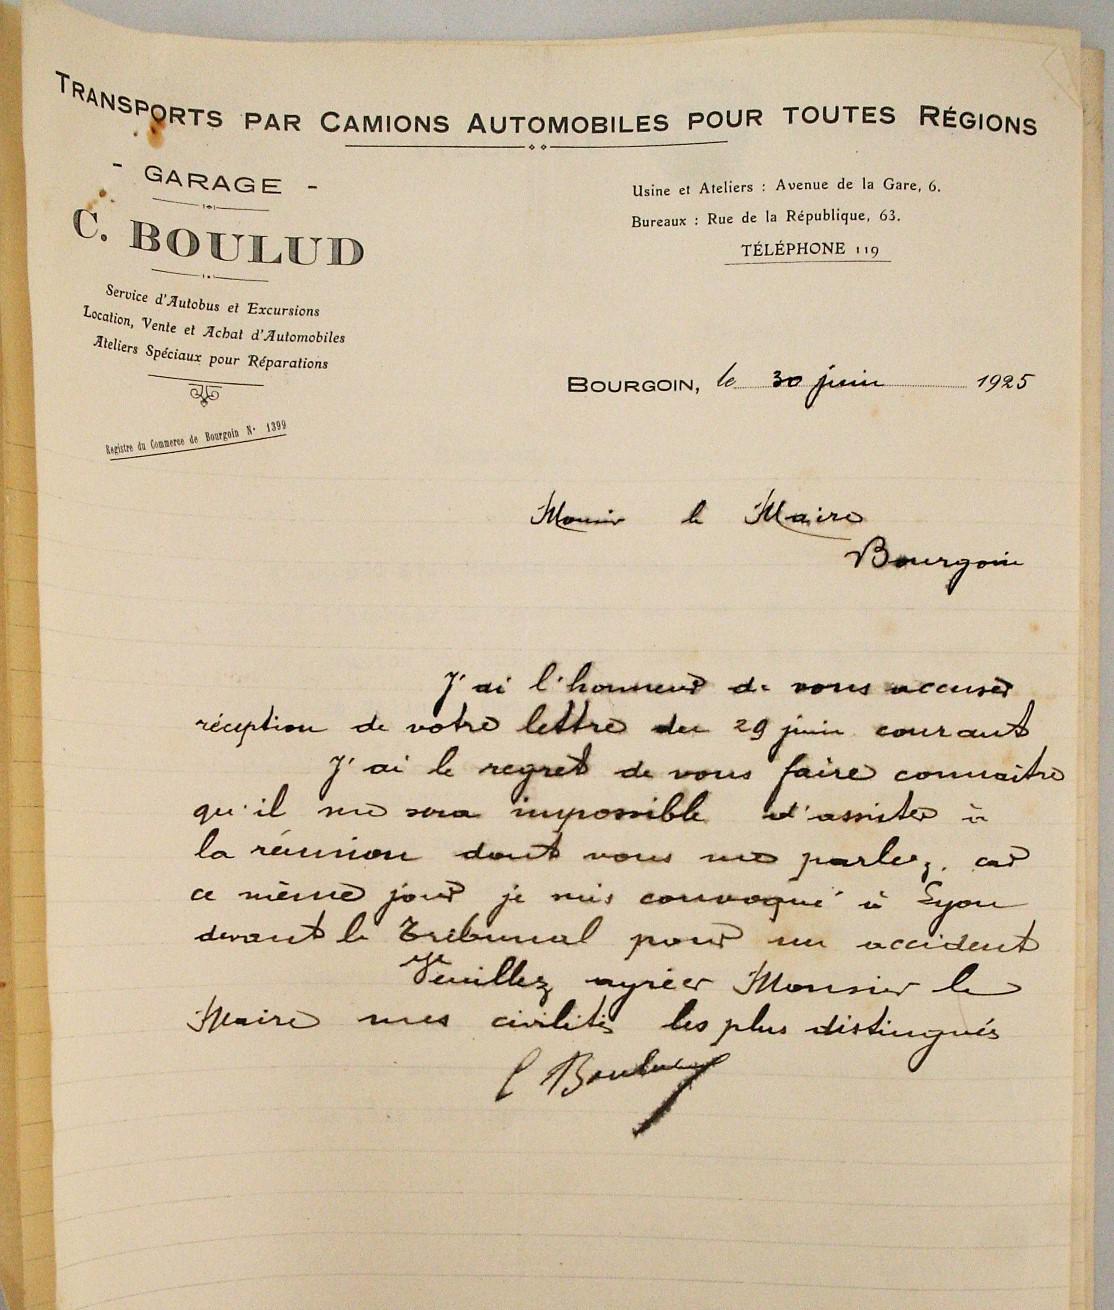 TRANSPORTS PAR CAMIONS AUTOMOBILES POUR TOUTES RÉGIONS
- GARAGE -
C. BOULUD
Service d'Autobus et Excursions
Location, Vente et Achat d'Automobiles
Ateliers Spéciaux pour Réparations
Registre du Commerce de Bourgoin N° 1399
Usine et Ateliers : Avenue de la Gare, 6.
Bureaux : Rue de la République, 63.
TÉLÉPHONE 119
BOURGOIN, le 30 juin 1925
Monsieur le Maire
Bourgoin
J'ai l'honneur de vous accuser
réception de votre lettre du 29 juin courant
J'ai le regret de vous faire connaitre
qu'il me sera impossible d'assister à
la réunion dont vous me parlez, car
ce même jour je suis convoqué à Lyon
devant le Tribunal pour un accident
Veuillez agréer Monsieur le
Maire mes civilités les plus distingués
C Boulud